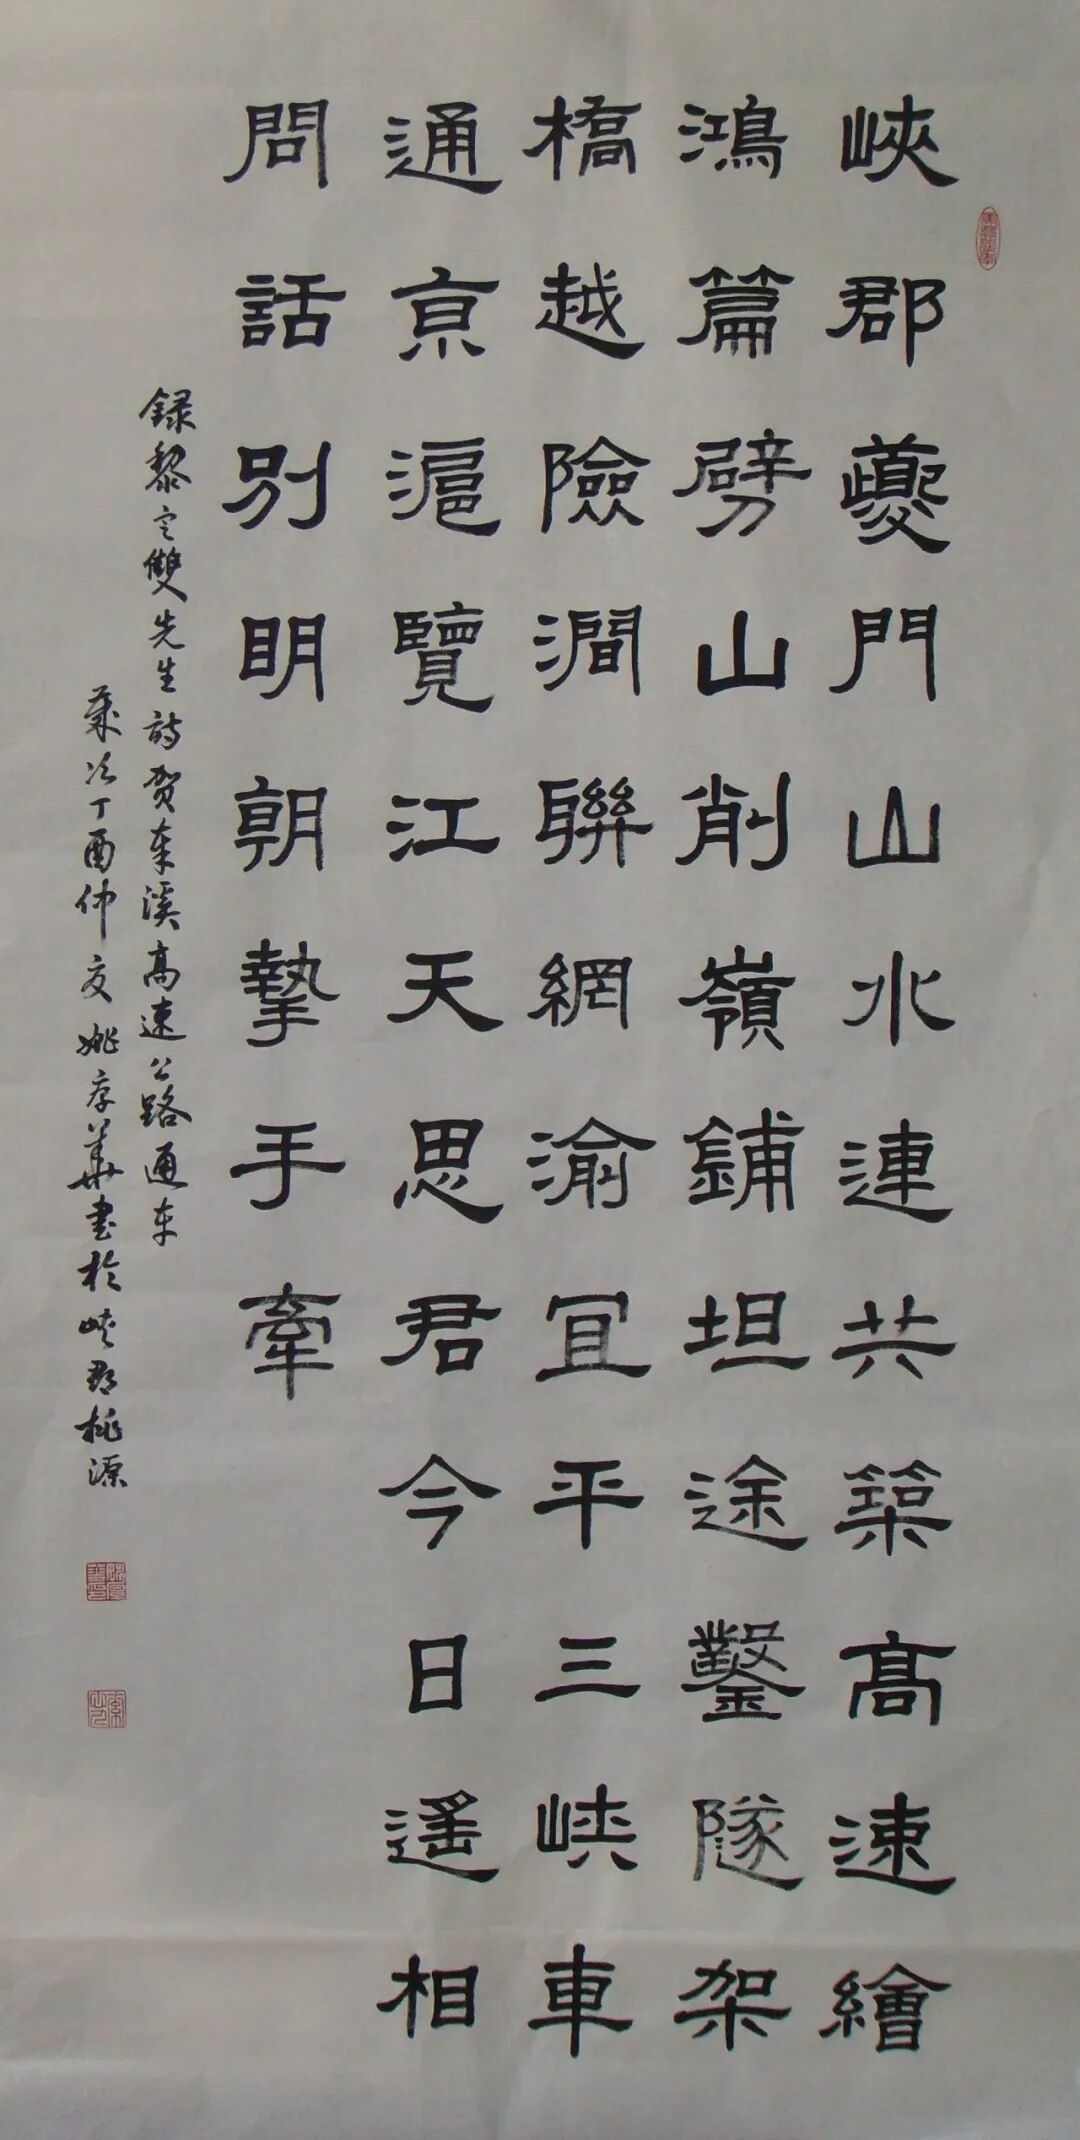 峽郡夔門山水連共築髙速繪
鴻篇劈山削嶺鋪坦途鑿隧架
橋越險澗聯網渝宜平三峡車
通京滬覽江天思君今日遥相
問話别明朝摯手牽
録黎定雙先生詩贺奉溪高速公路通车
歲次丁酉仲夏姚存華書於峡郡桃源